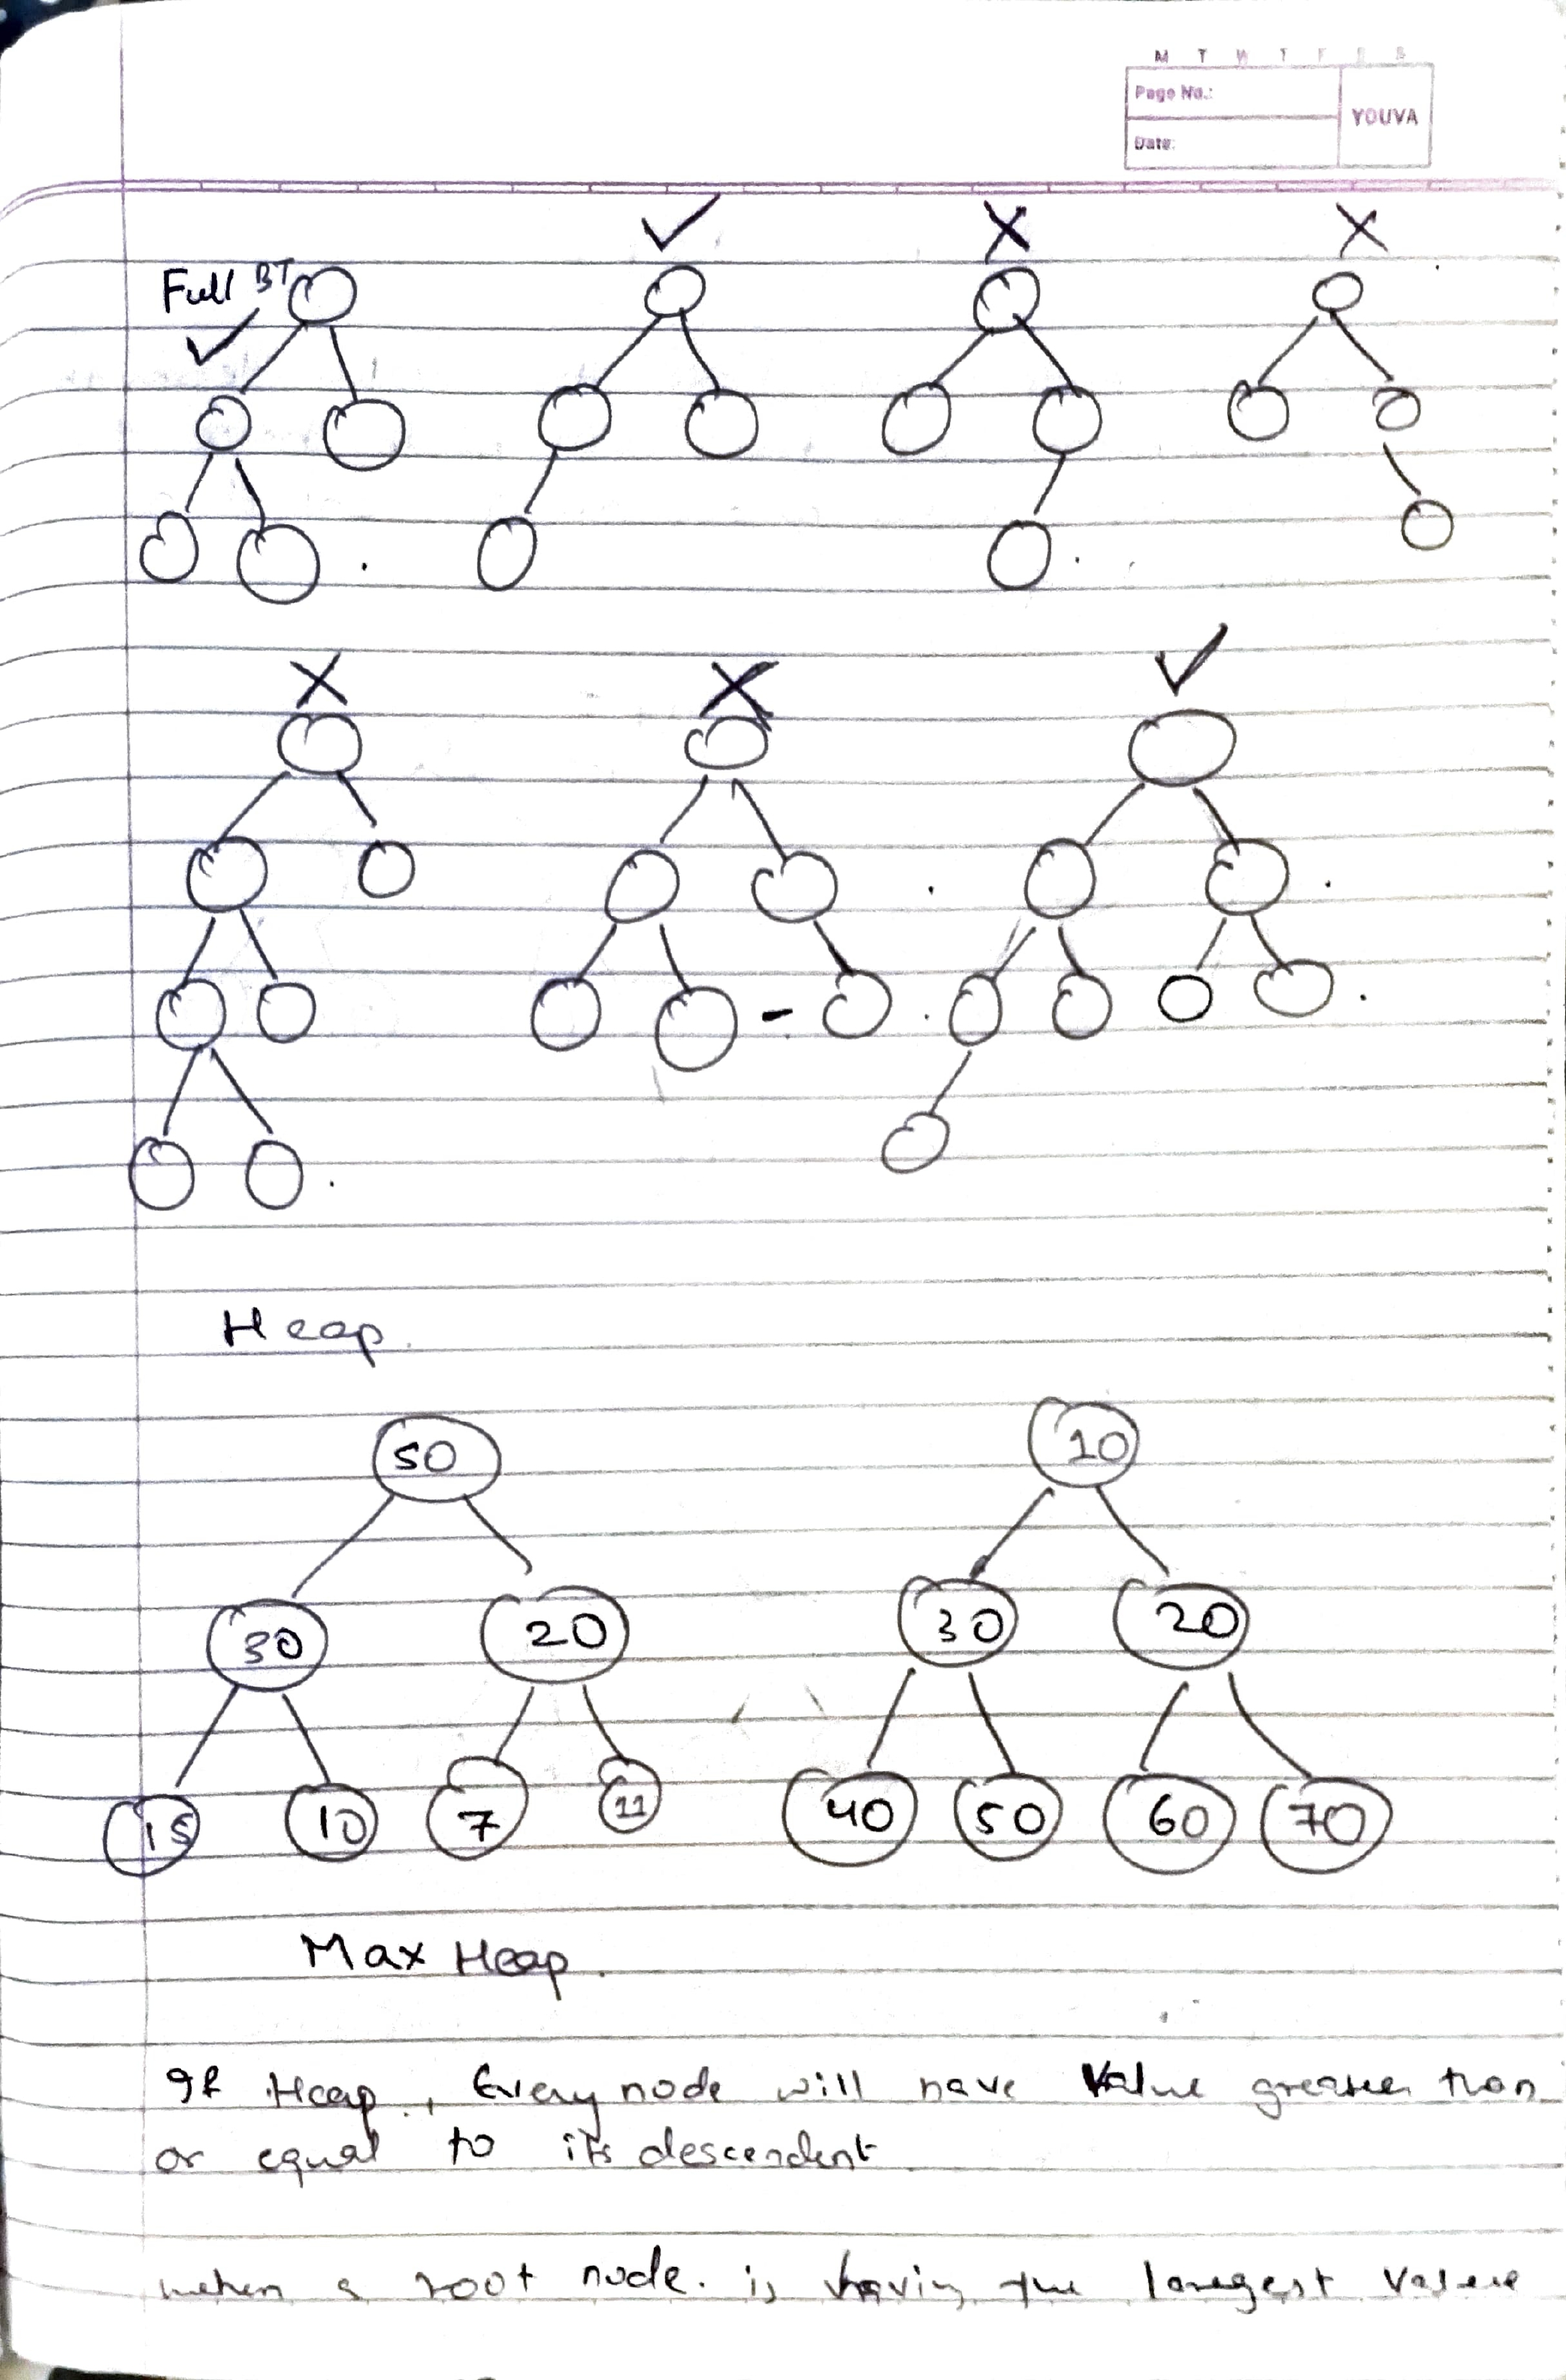 M T W T F S S
Page No.:
YOUVA
Date:
✓ X X
Full BT
✓
X X ✓
Heap.
50 10
30 20 30 20
15 10 7 11 40 50 60 70
Max Heap.
If Heap, Every node will have Value greater than
or equal to its descendent
when a root node. is having the largest value